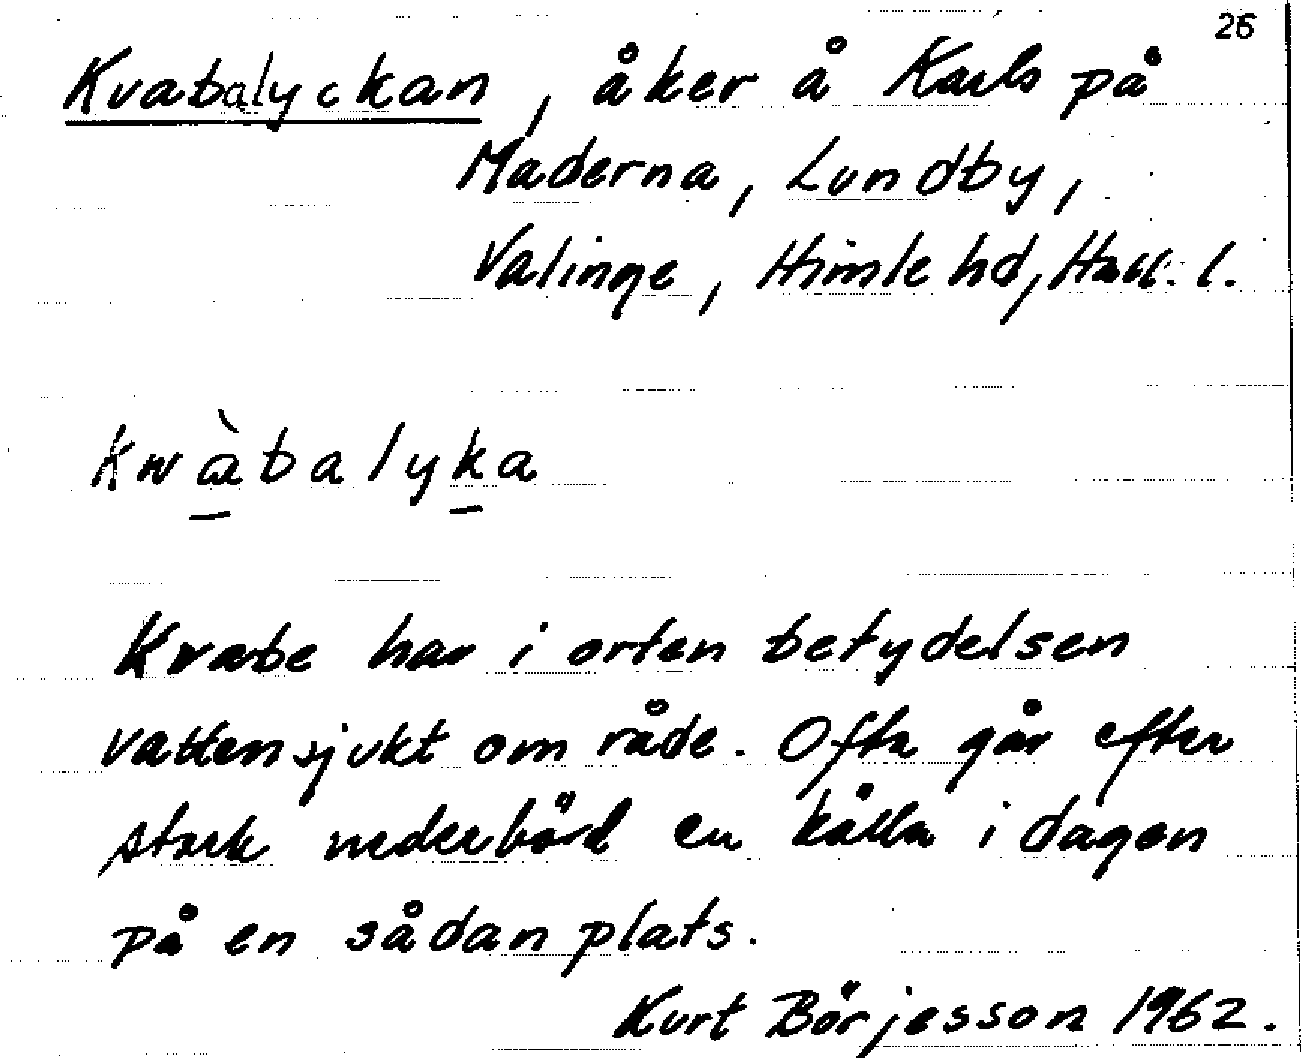 26
Kvabalyckan, åker å Karls på
Maderna, Lundby,
Valinge, Himle hd, Hall. l.
kwàbalyka
Kvabe har i orten betydelsen
vattensjukt område. Ofta går efter
stark nederbörd en källa i dagen
på en sådan plats.
Kurt Börjesson 1962.